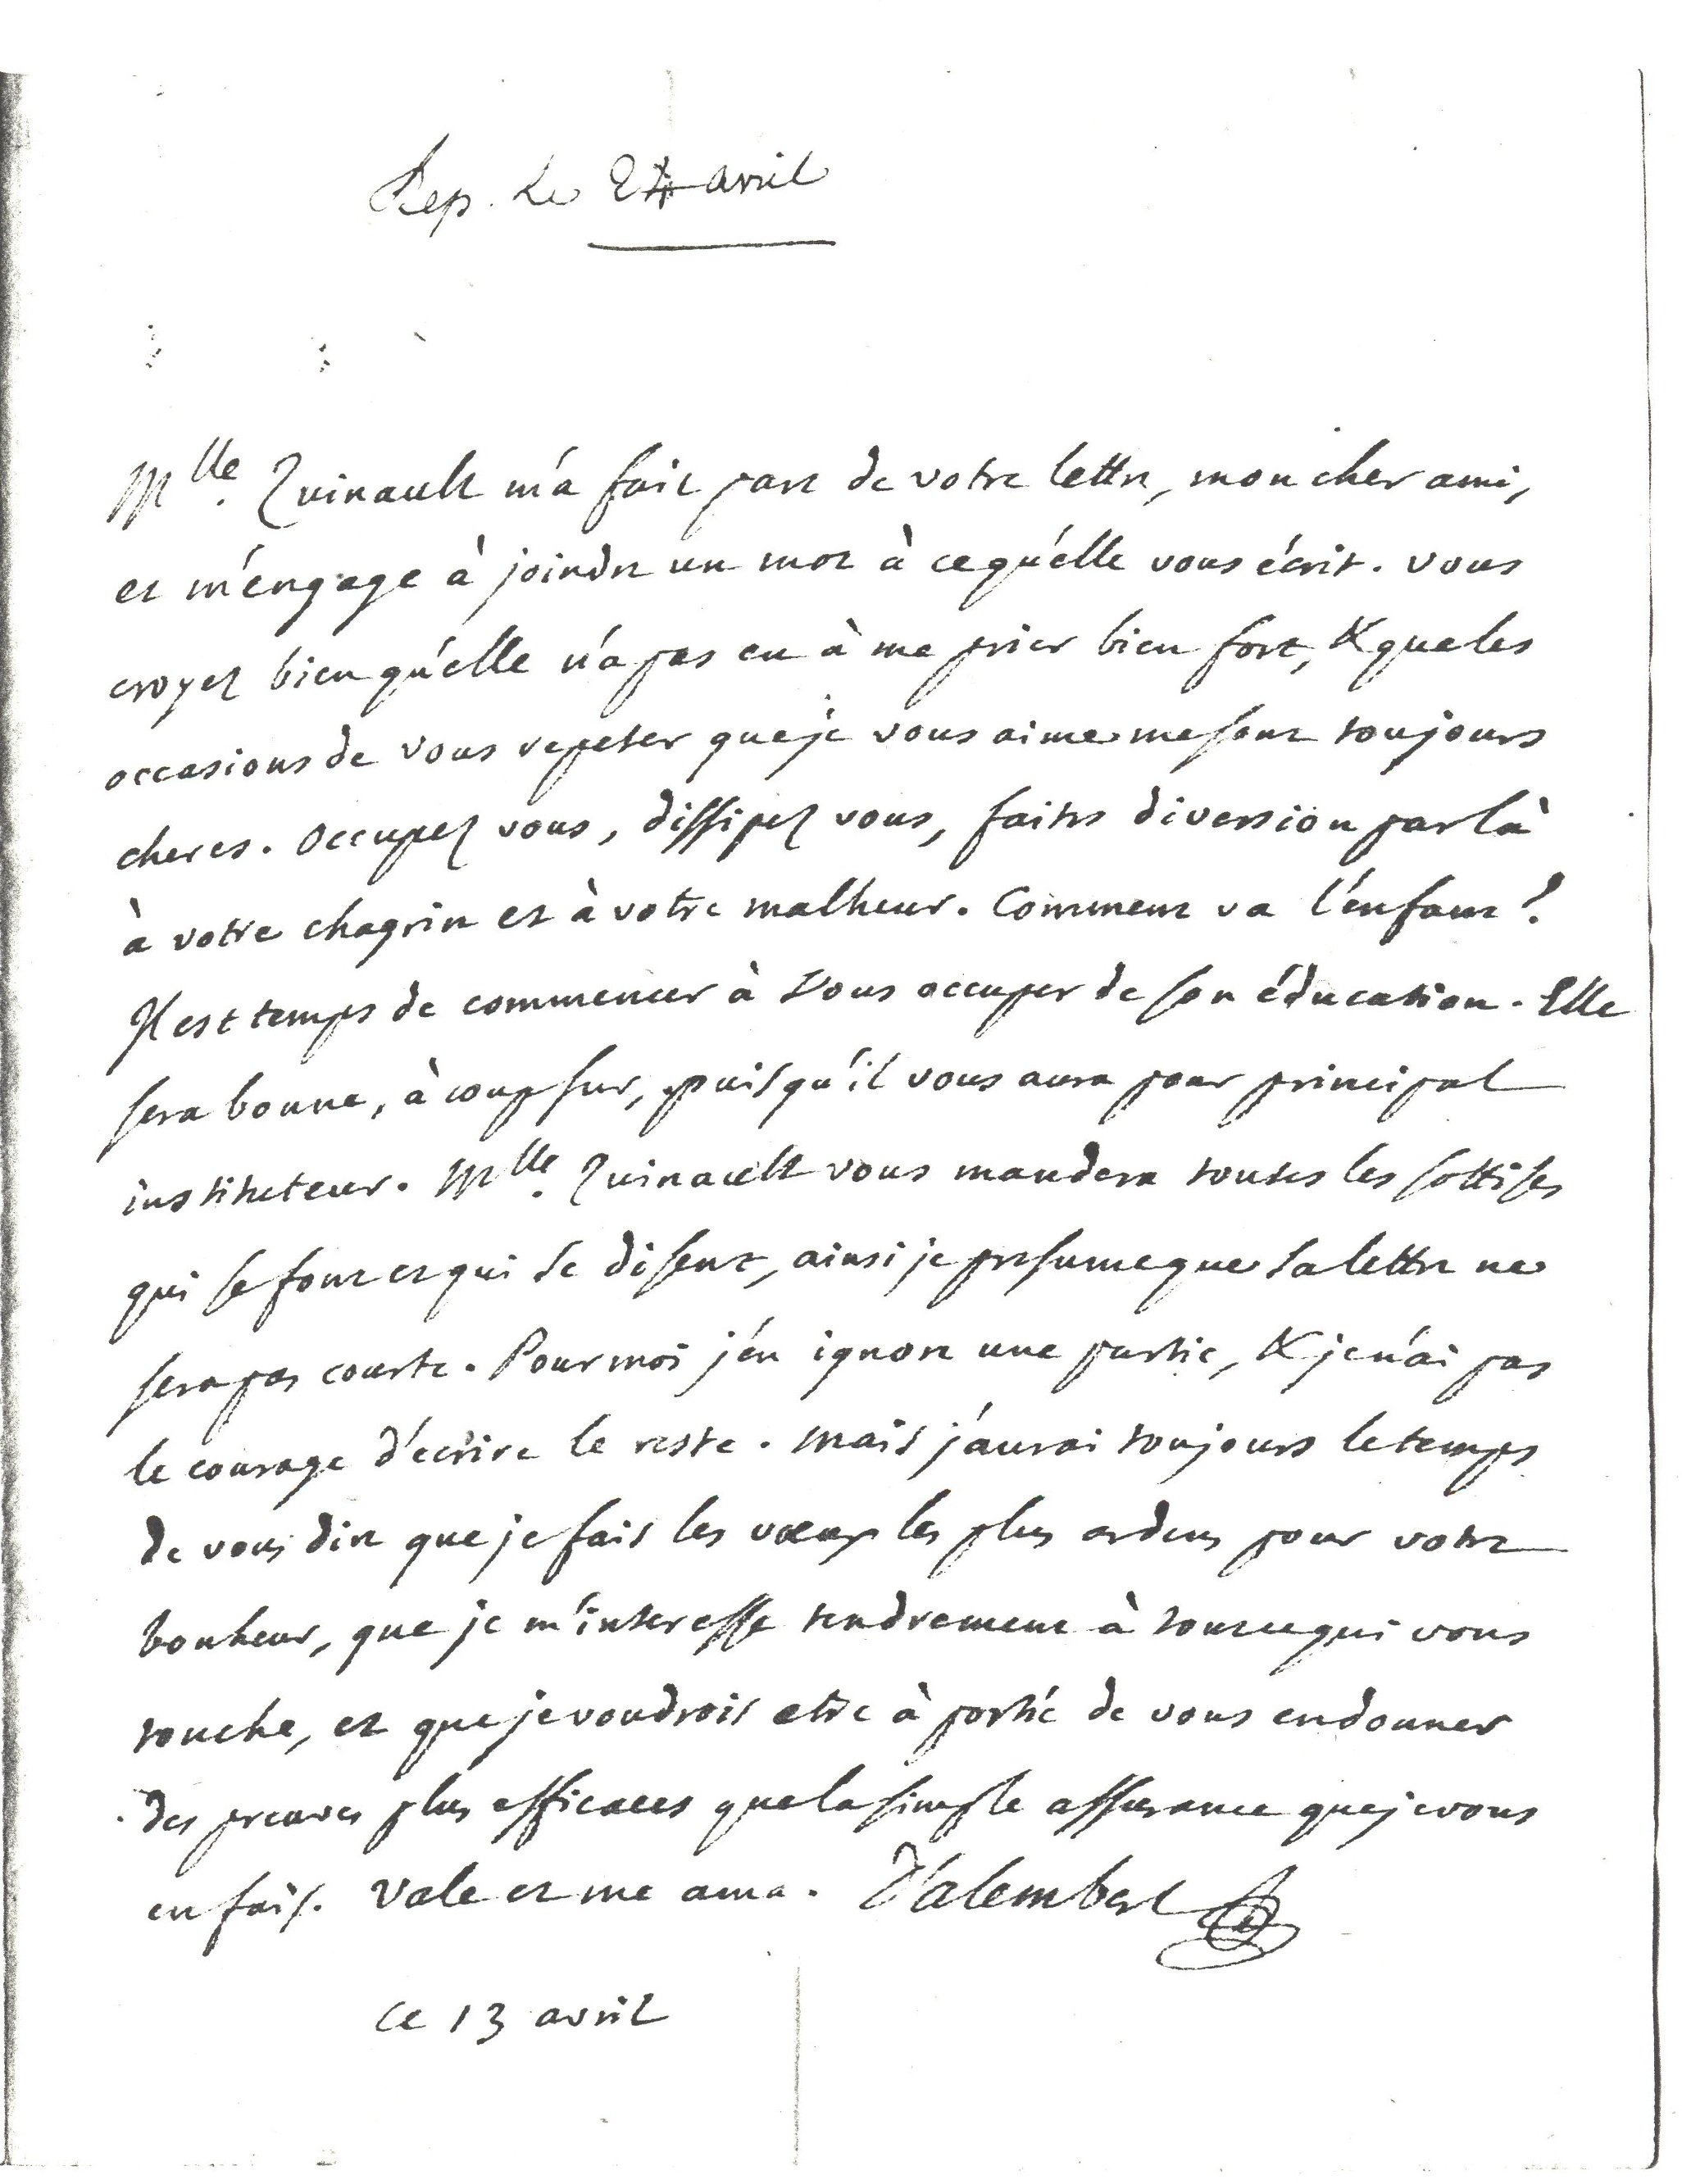 Rep. le 24 avril
Mlle. Quinault m'a fait part de votre lettre, mon cher ami,
et m'engage à joindre un mot à ce qu'elle vous écrit. vous
croyez bien qu'elle n'a pas eu à me prier bien fort, & que les
occasions de vous repeter que je vous aime me sont toujours
cheres. occupez vous, dissipez vous, faites diversion par là
à votre chagrin et à votre malheur. Comment va l'enfant?
Il est temps de commencer à vous occuper de son éducation. Elle
sera bonne, à coup sur, puisqu'il vous aura pour principal
instituteur. Mlle. Quinault vous mandera toutes les sottises
qui se font et qui se disent, ainsi je presume que sa lettre ne
sera pas courte. Pour moi j'en ignore une partie, & je n'ai pas
le courage d'écrire le reste. mais j'aurai toujours le temps
de vous dire que je fais les vœux les plus ardens pour votre
bonheur, que je m'interesse tendrement à tout ce qui vous
touche, et que je voudrois etre à portée de vous en donner
des preuves plus efficaces que la simple assurance que je vous
en fais. Vale et me ama. D'alembert
ce 13 avril